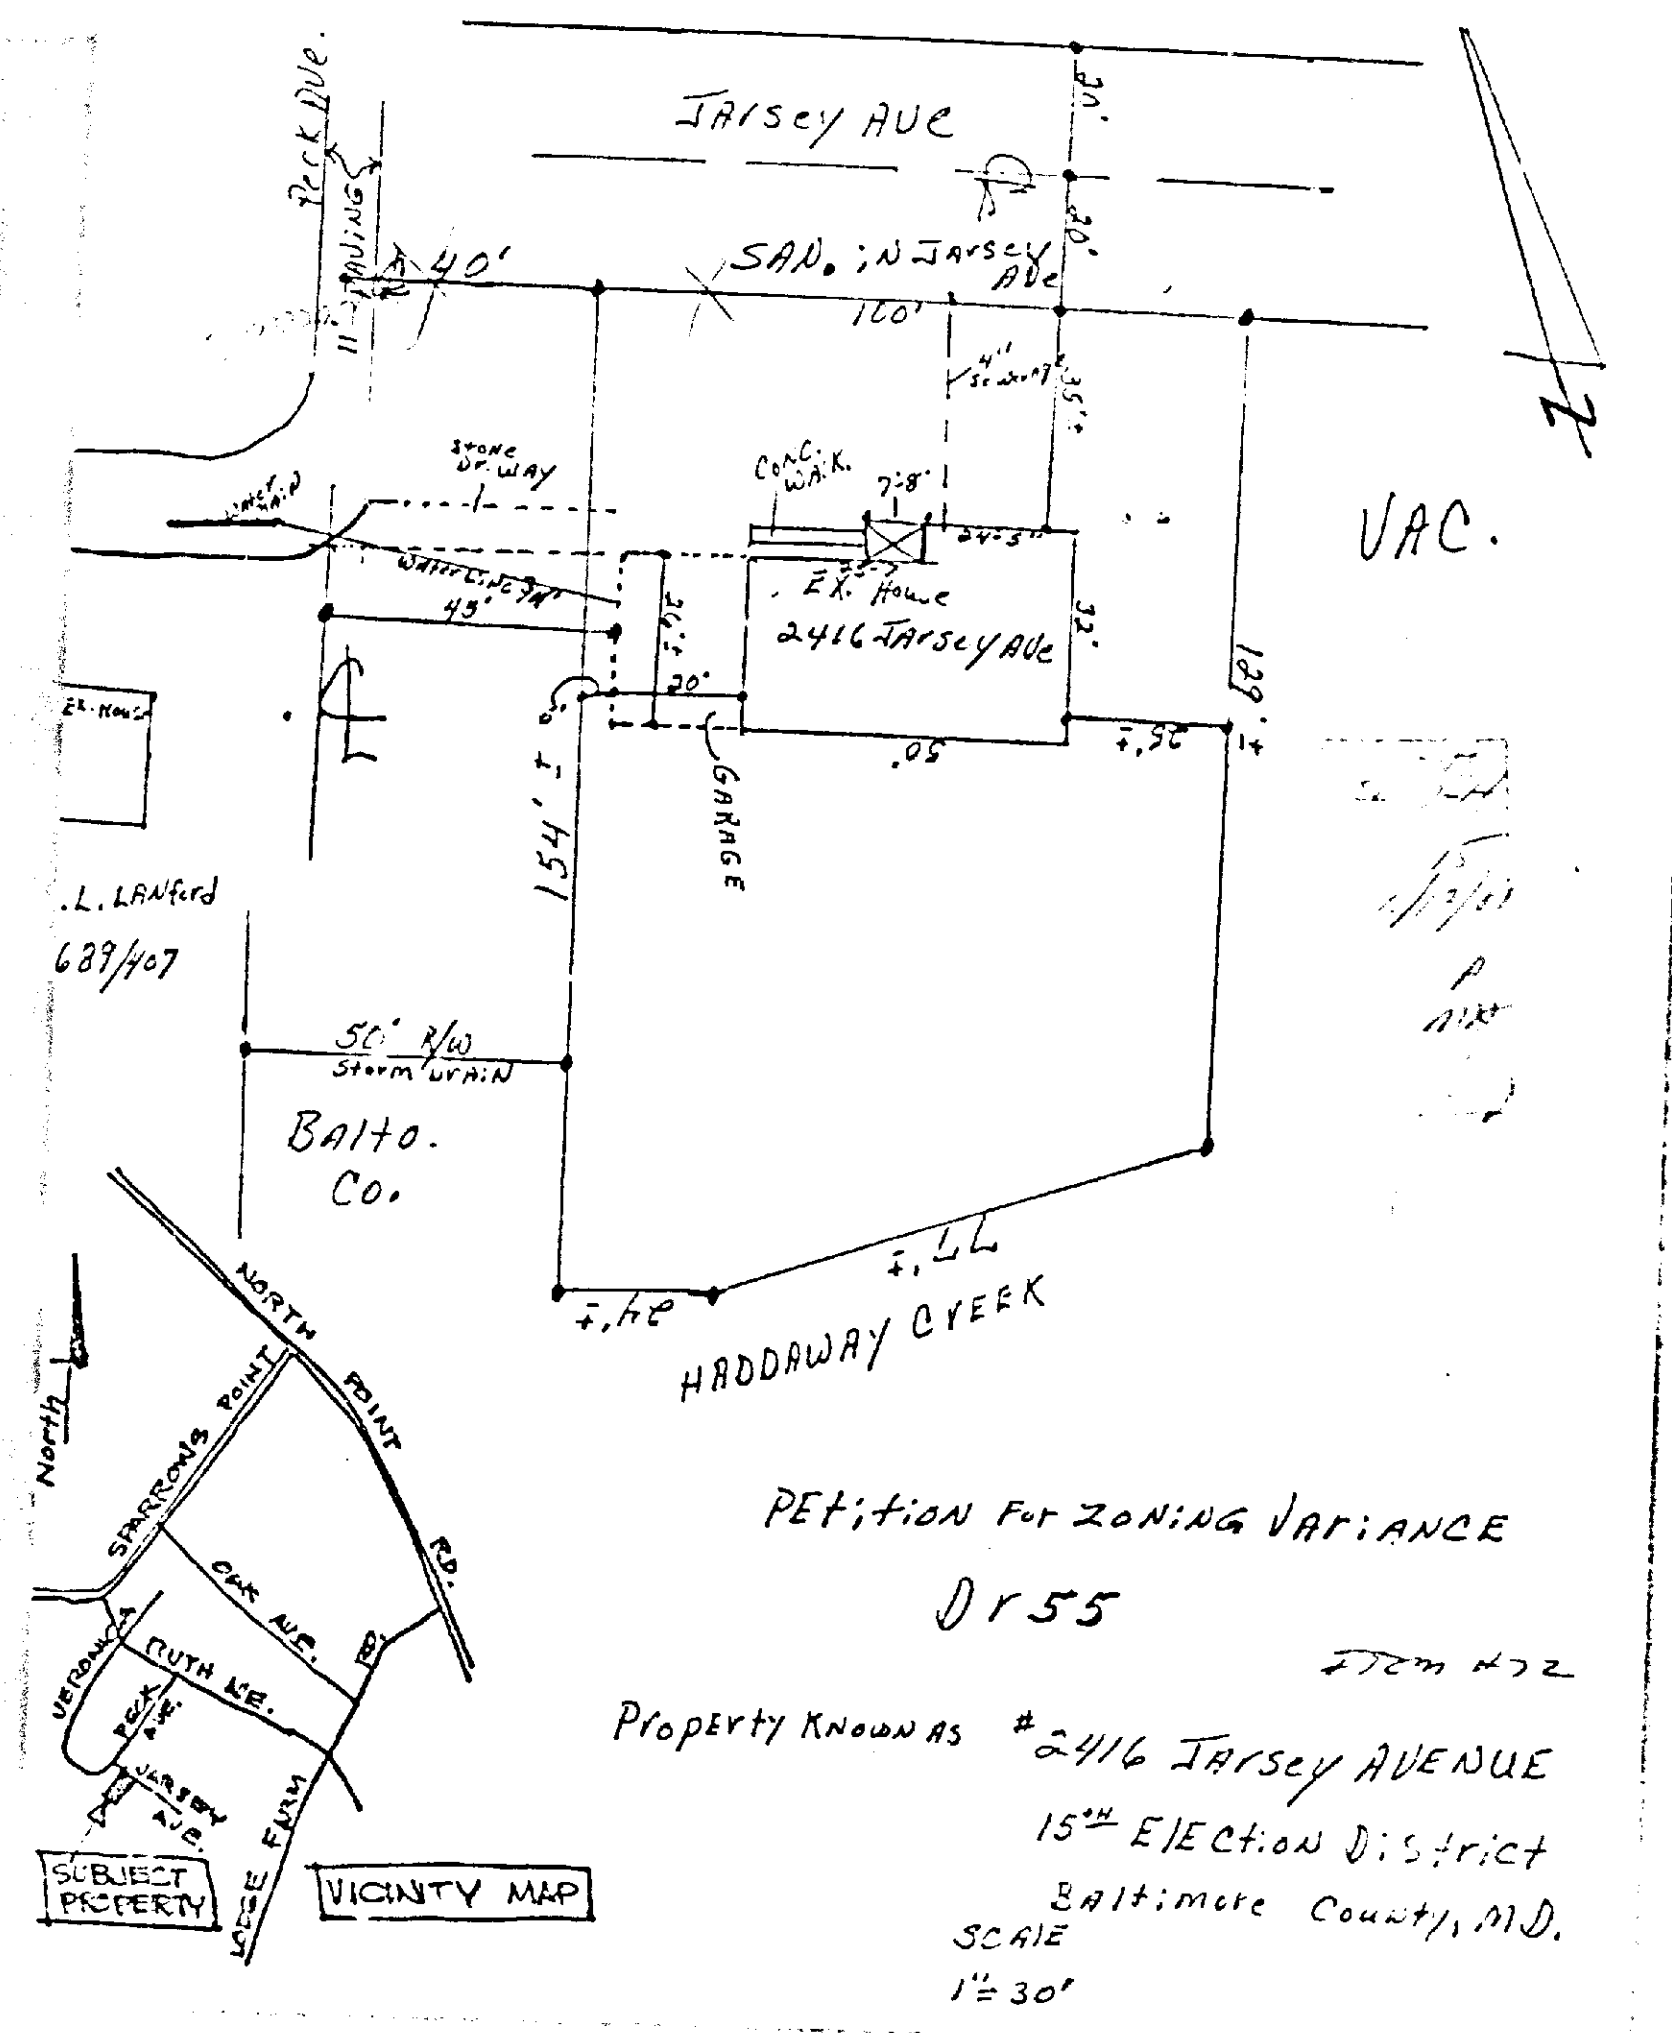 Peck Ave.
JArsey AVE
20'
PAVING
11'
40'
SAN. iN JArsey
AVe
20'
160'
4"
35'±
STONE
Dr.WAY
CONC.
WAlK.
7'-8"
24'-5"
WAter
MAiN
Water Line 3/4"
45'
EX. House
2416 JArsey AVe
24'±
32'
20'
0'
50'
25'±
129'±
VAC.
N
EX-House
GARAGE
154'±
.L. LANford
689/407
50' R/W
Storm DrAiN
BAlto.
Co.
77'±
24'±
HADDAWAY CrEEK
NORTH POINT RD.
SPARROWS POINT
North
OAK AVE.
RD.
VERONICA
RUTH AVE.
PECK
AVE.
JARSEY
AVE.
LODGE FARM
SUBJECT
PROPERTY
VICINITY MAP
PEtition For ZONiNG VAriANCE
Dr 55
Item #72
ProPErty KNOWN AS #2416 JArsey AVENUE
15TH ElECtioN District
BAltimore County, MD.
SCAlE
1"=30'